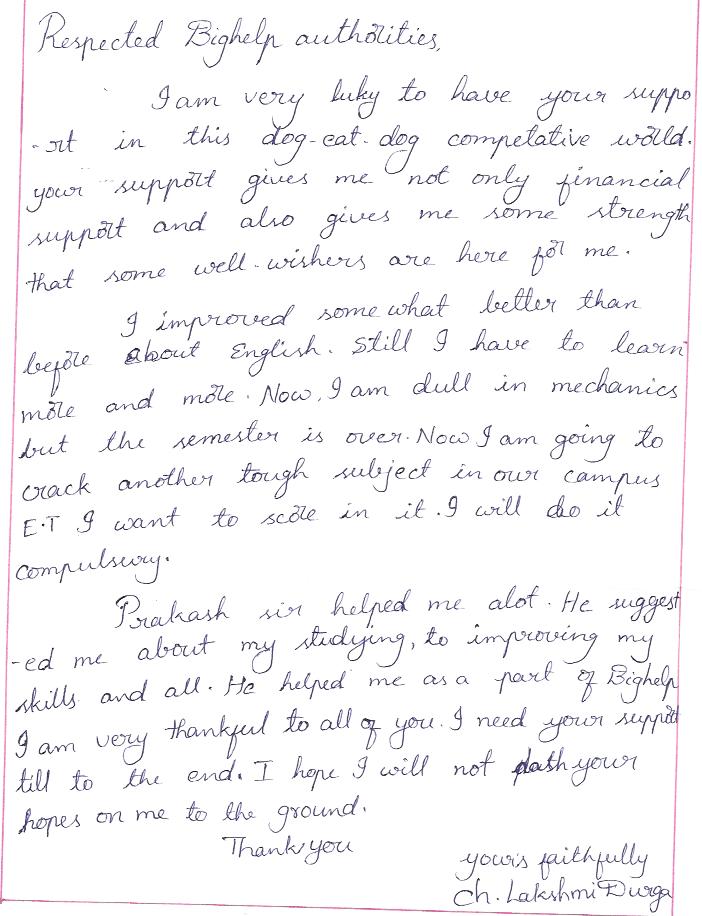 Respected Bighelp authorities,
I am very luky to have your suppo
-rt in this dog-eat-dog competative world.
your support gives me not only financial
support and also gives me some strength
that some well-wishers are here for me.
I improved somewhat better than
before about English. Still I have to learn
more and more. Now, I am dull in mechanics
but the semester is over. Now I am going to
crack another tough subject in our campus
E.T I want to score in it. I will do it
compulsury.
Prakash sir helped me alot. He suggest
-ed me about my studying, to improving my
skills and all. He helped me as a part of Bighelp
I am very thankful to all of you. I need your support
till to the end. I hope I will not dash your
hopes on me to the ground.
Thank you
yours faithfully
Ch. Lakshmi Durga